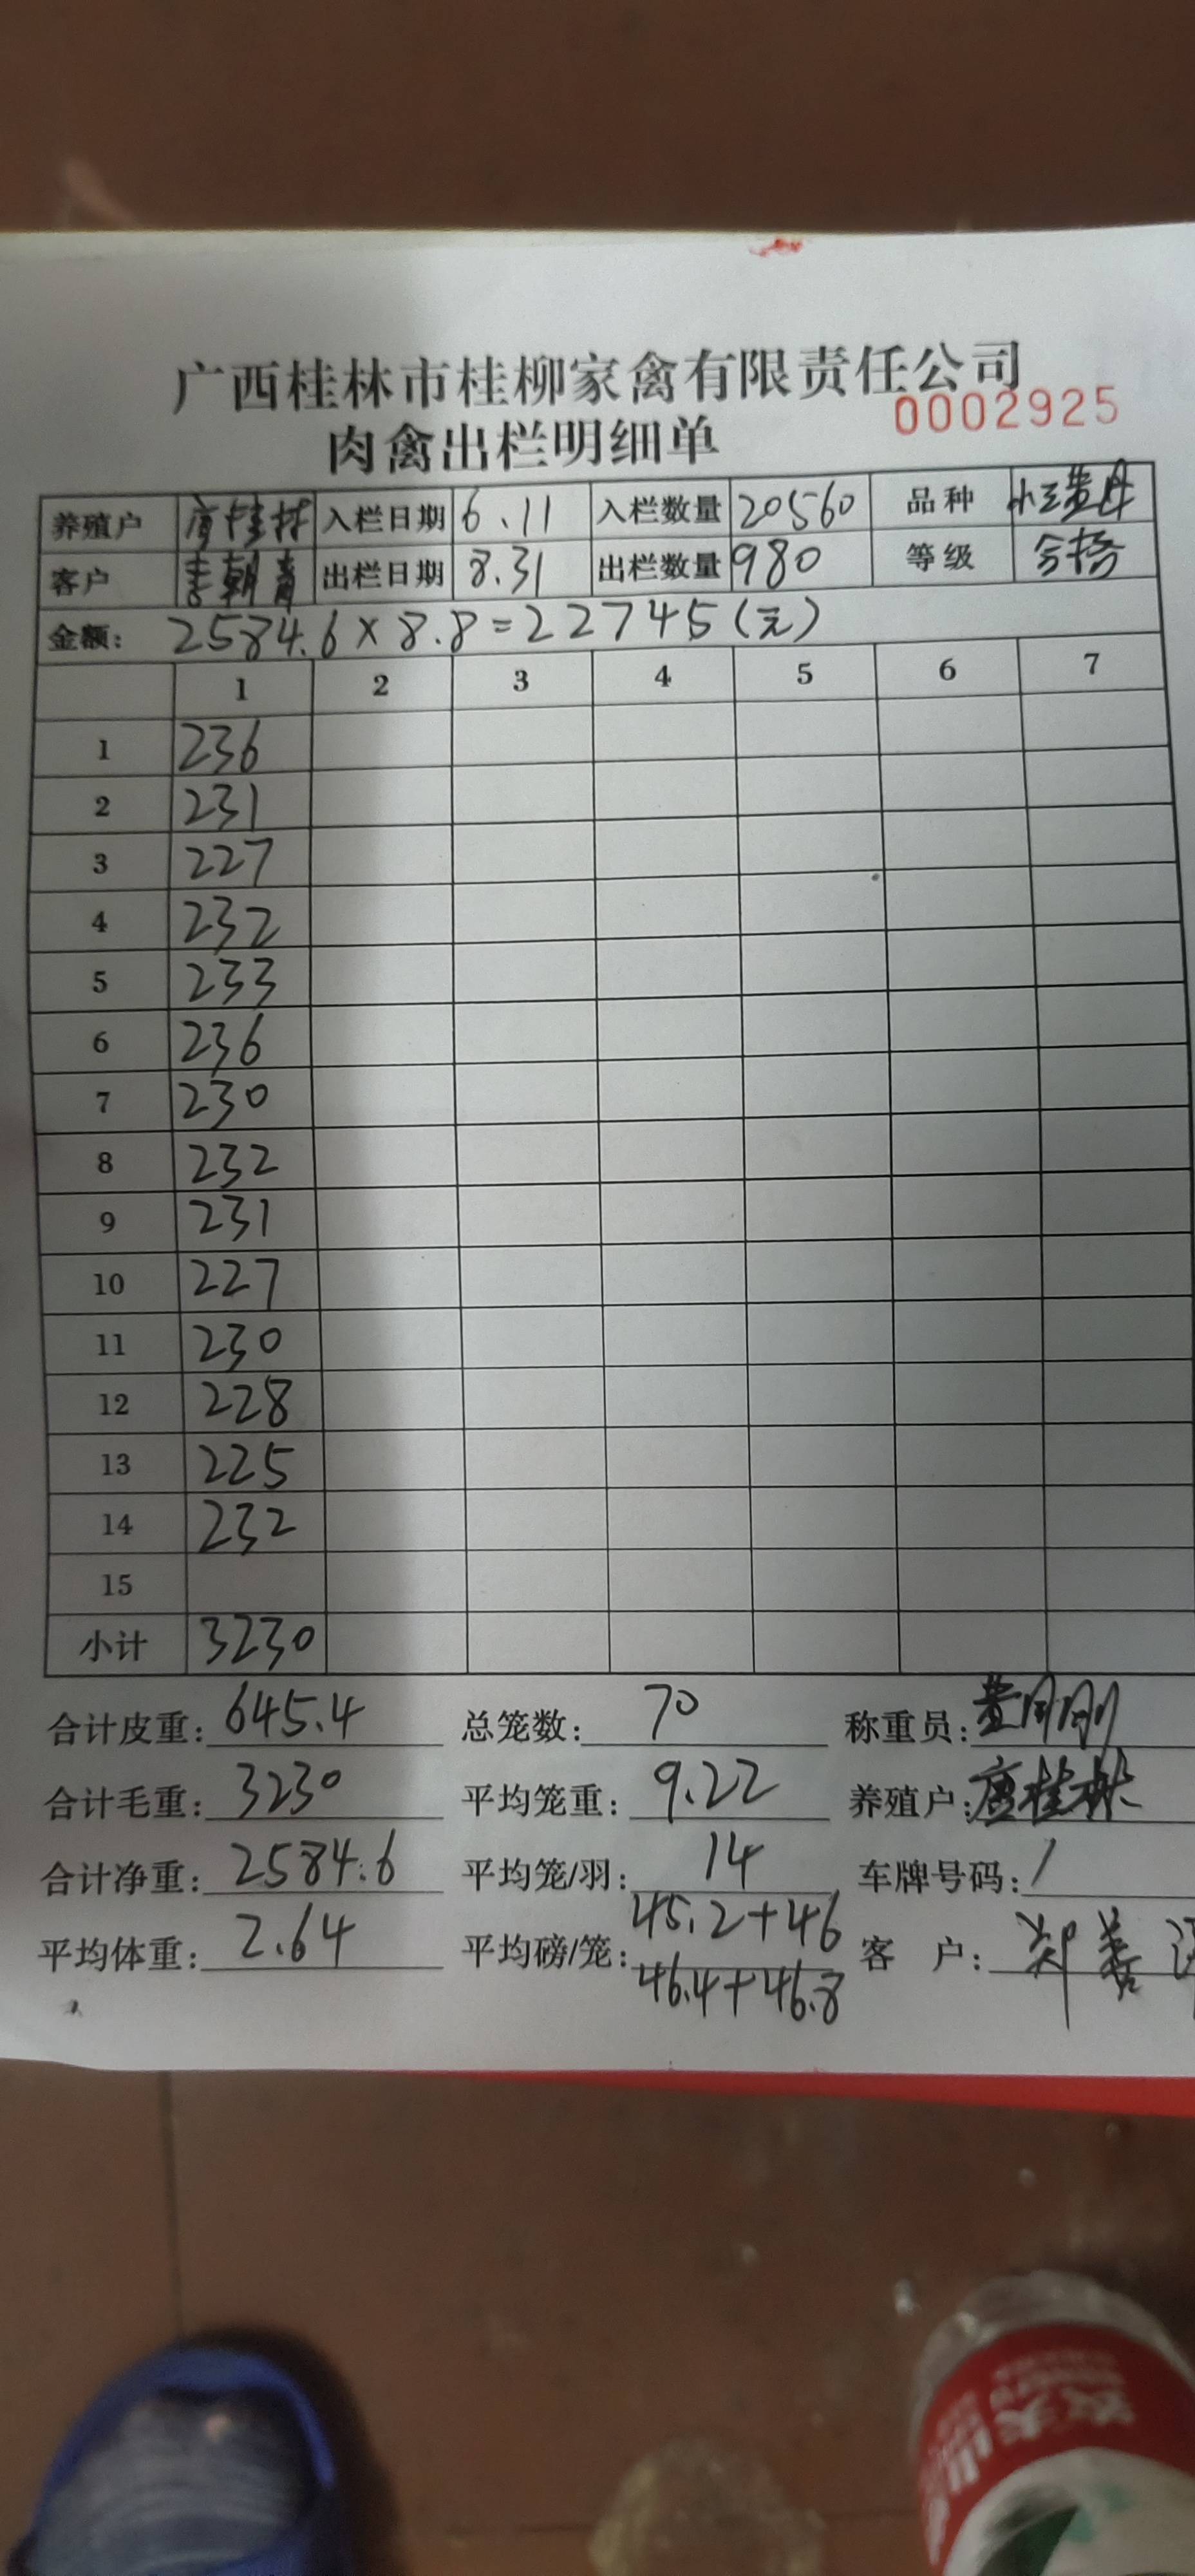 广西桂林市桂柳家禽有限责任公司
0002925
肉禽出栏明细单
养殖户 唐桂林 入栏日期 6.11 入栏数量 20560 品种
客户 李朝青 出栏日期 8.31 出栏数量 980 等级 合格
金额: 2584.6×8.8=22745(元)
1 2 3 4 5 6 7
1 236
2 231
3 227
4 232
5 233
6 236
7 230
8 232
9 231
10 227
11 230
12 228
13 225
14 232
15
小计 3230
合计皮重: 645.4 总笼数: 70 称重员:
合计毛重: 3230 平均笼重: 9.22 养殖户: 唐桂林
合计净重: 2584.6 平均笼/羽: 14 车牌号码: /
平均体重: 2.64 平均磅/笼: 45.2+46 客 户:
46.4+46.8